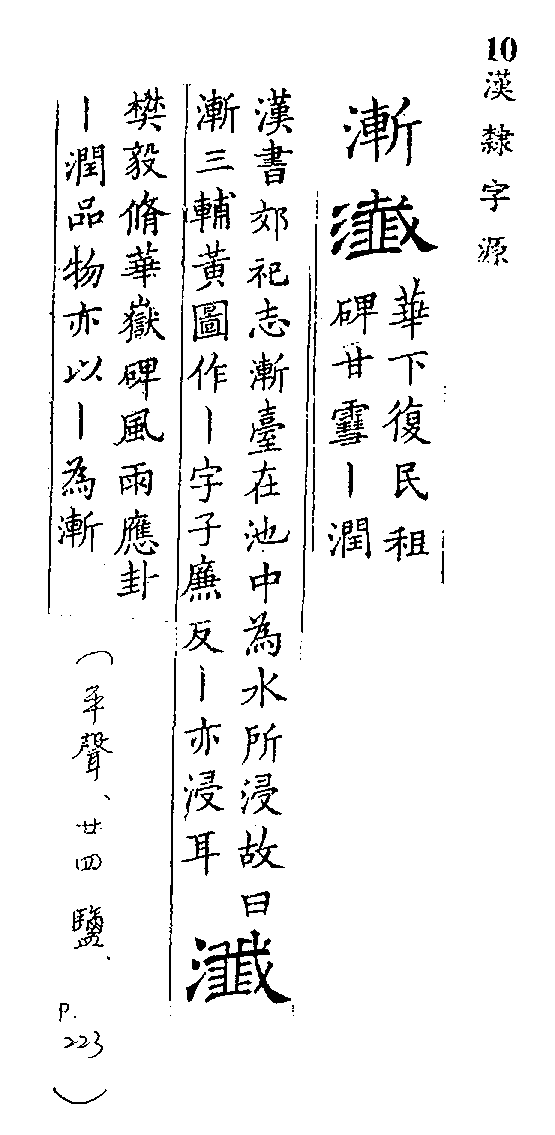 10漢隸字源
漸
瀸
華下復民租
碑甘雪丨潤
漢書郊祀志漸臺在池中為水所浸故曰
漸三輔黃圖作丨字子廉反丨亦浸耳
瀸
樊毅脩華嶽碑風雨應卦
丨潤品物亦以丨為漸
(平聲、廿四鹽、
p.
223)